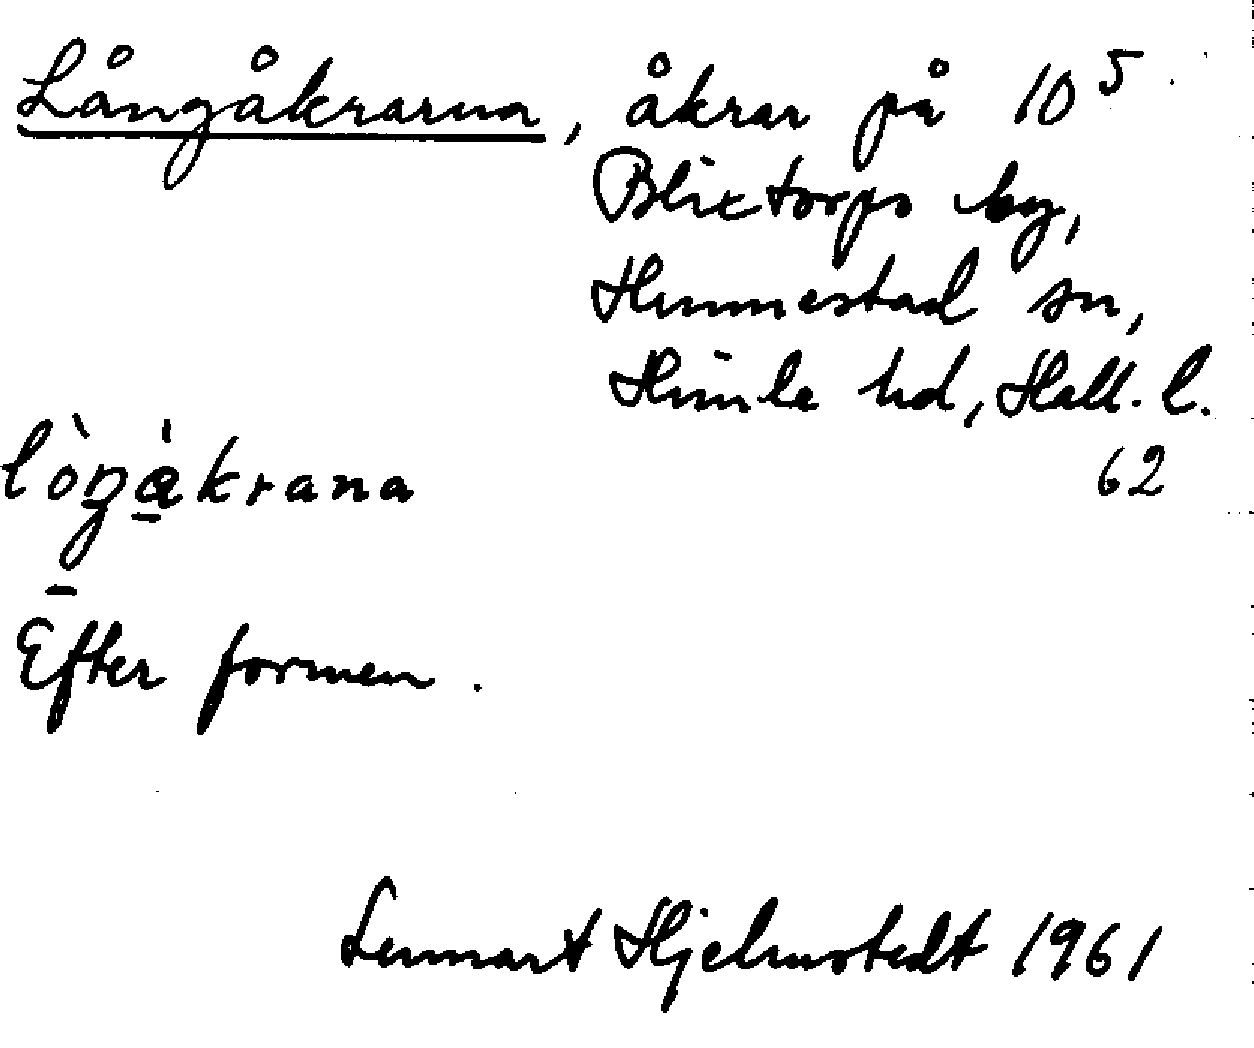 Långåkrarna, åkrar på 10⁵
Blixtorps by,
Himmestad sn,
Himle hd, Hall. l.
62
lòŋákrana
Efter formen.
Lennart Hjelmstedt 1961